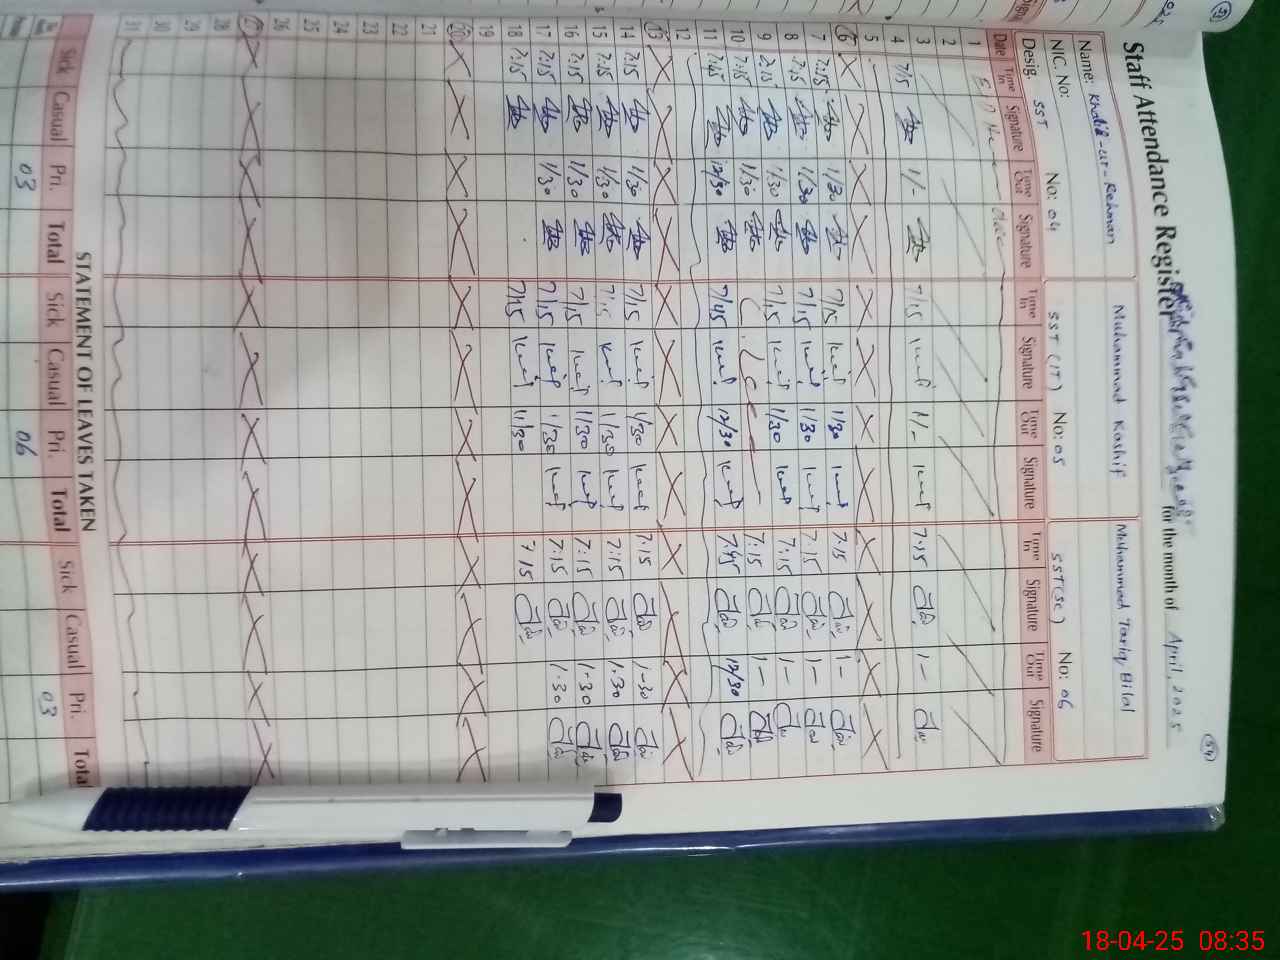 Staff Attendance Register for the month of April, 2025
54
Name: Khalil-ur-Rehman Muhammad Kashif Muhammad Tariq Bilal
NIC. No:
Desig. SST No: 04 SST (IT) No: 05 SST(SC) No: 06
Date Time In Signature Time Out Signature Time In Signature Time Out Signature Time In Signature Time Out Signature
1
2
3 7/15 1/- 7/15 1/- 7.15 1-
4
5
6 7.15 1/30 7/15 1/30 7.15 1-
7 7.15 1/30 7/15 1/30 7.15 1-
8 7.15 1/30 7/15 1/30 7:15 1-
9 7.15 1/30 7:15 1-
10 7.45 12/30 7/45 12/30 7.45 12/30
11
12
13
14 7.15 1/30 7/15 1/30 7.15 1-30
15 7.15 1/30 7/15 1/30 7:15 1.30
16 7.15 1/30 7/15 1/30 7:15 1-30
17 7.15 1/30 7/15 1/30 7:15 1.30
18 7.15 7/15 1/30 7 15
19
20
21
22
23
24
25
26
27
28
29
30
31
STATEMENT OF LEAVES TAKEN
Sick Casual Pri. Total Sick Casual Pri. Total Sick Casual Pri. Total
03 06 03
18-04-25 08:35